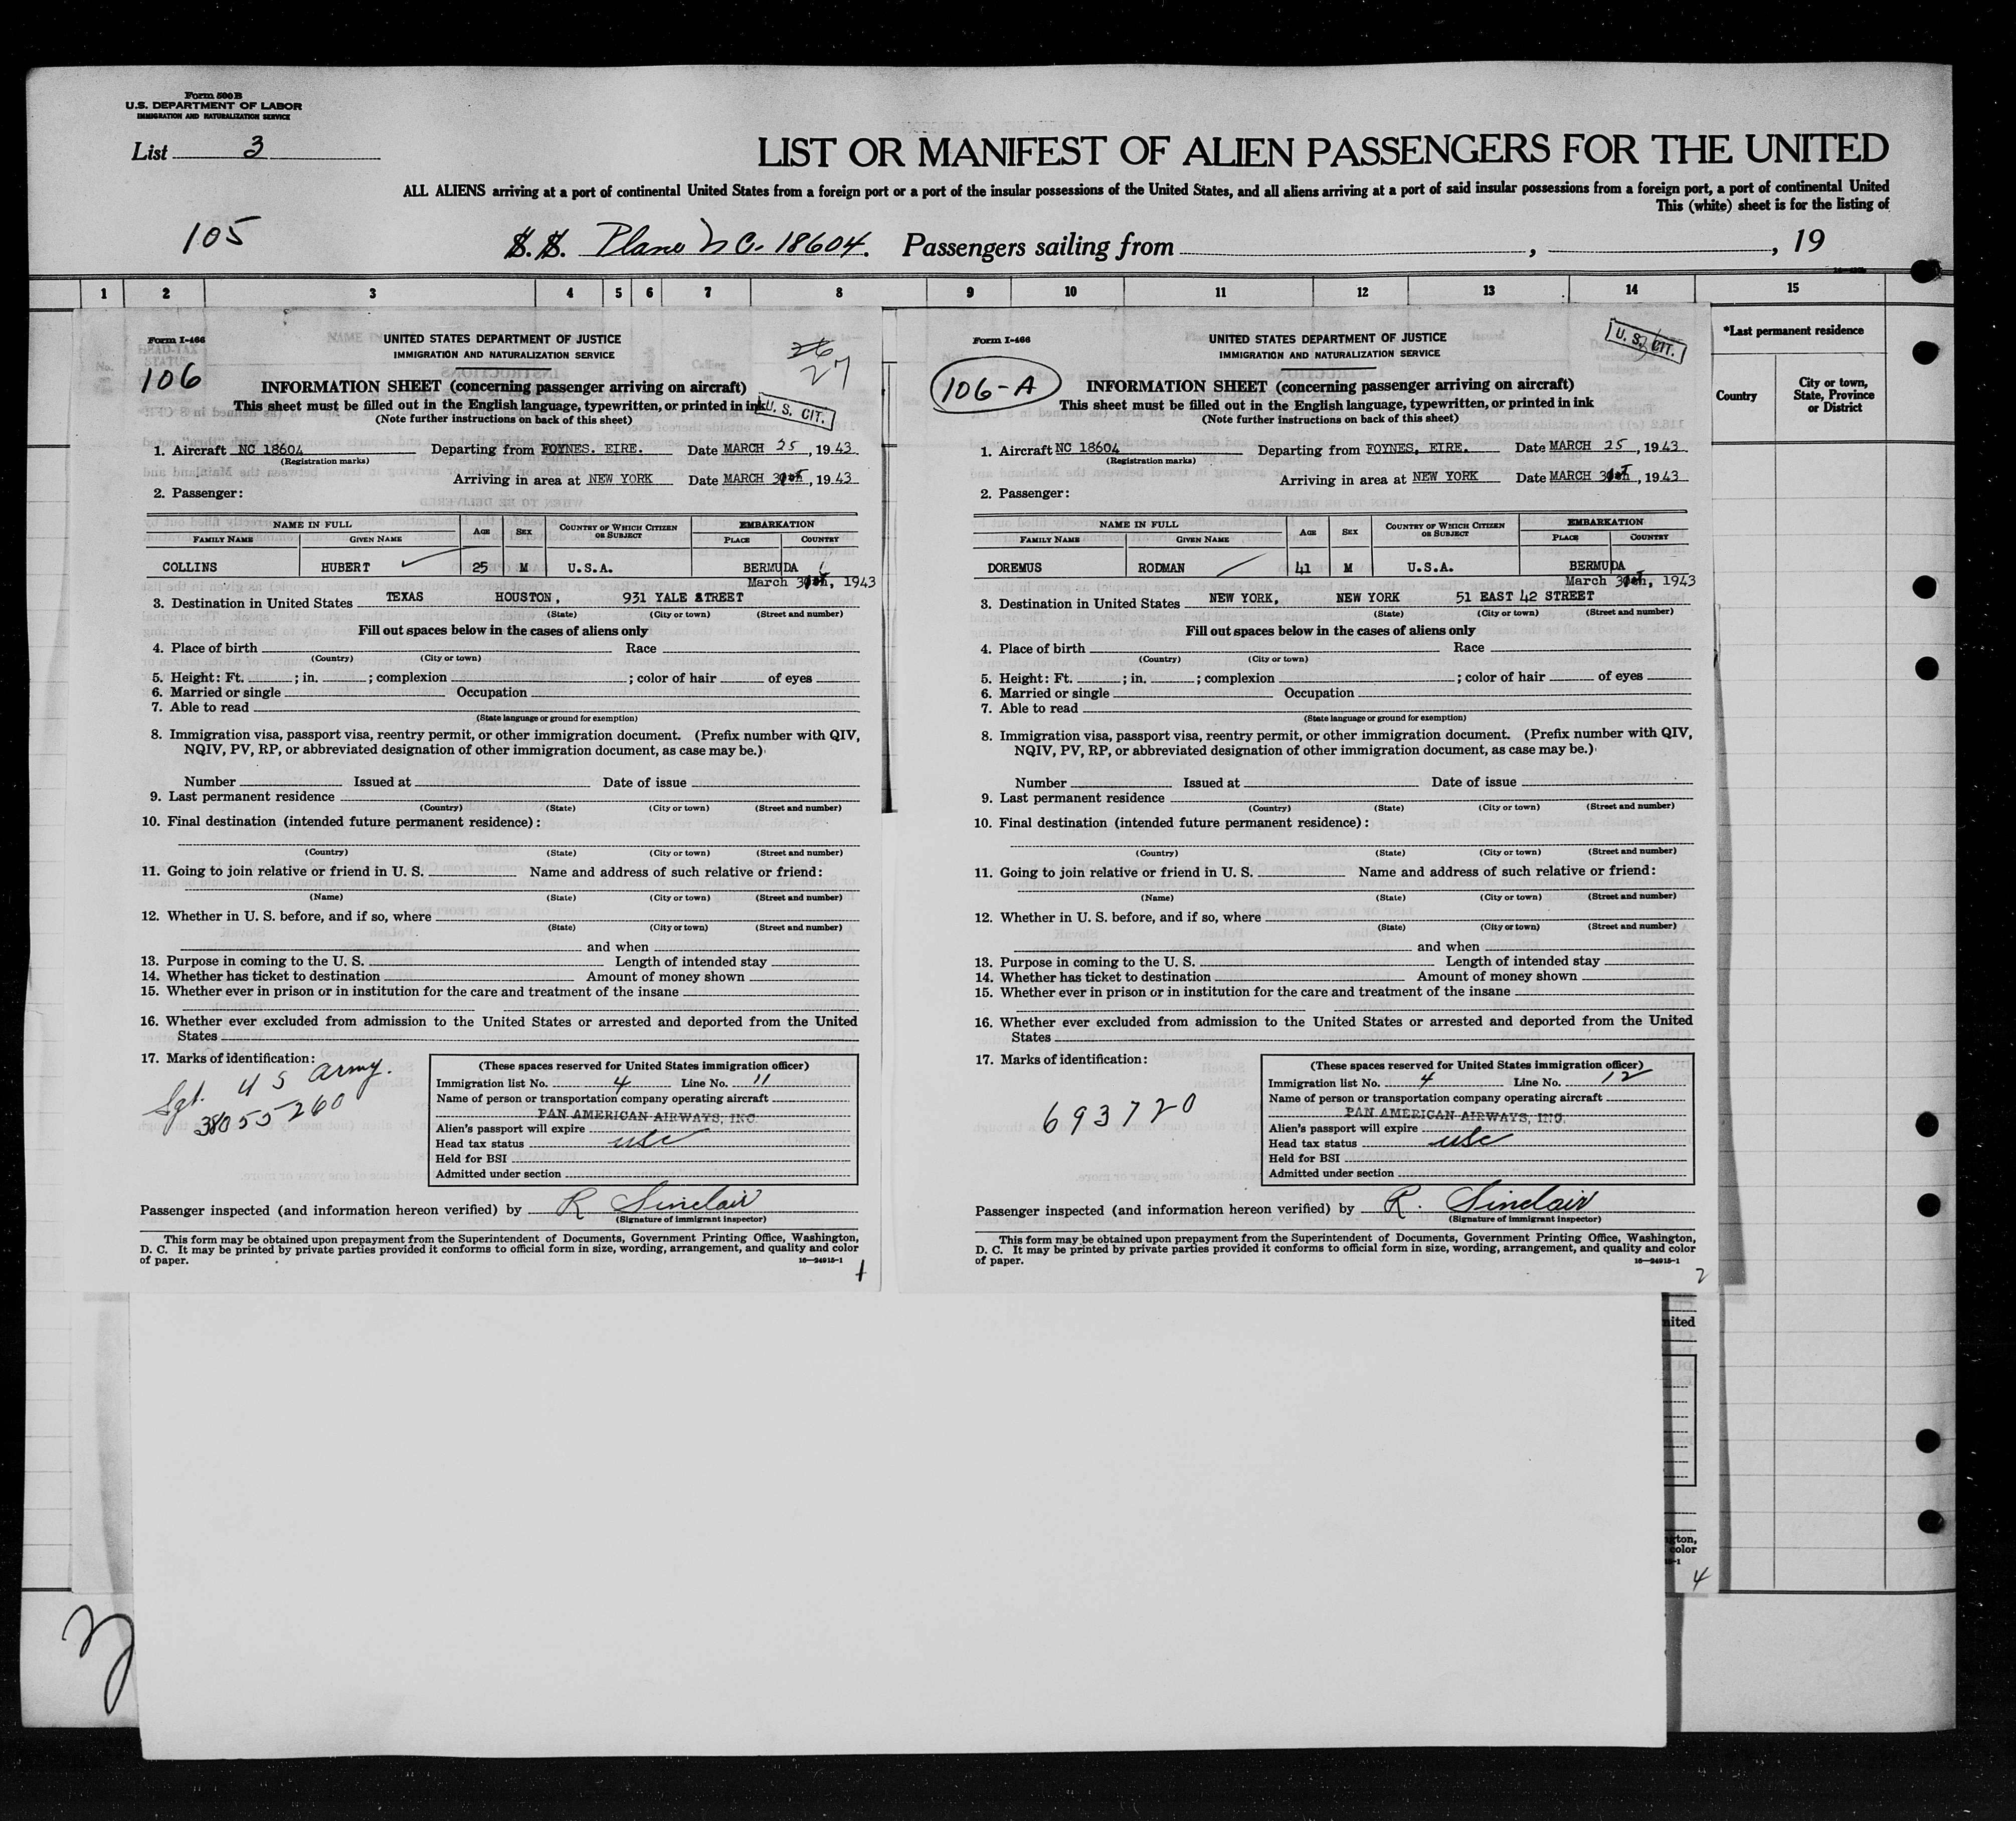 Form 500B
U.S. DEPARTMENT OF LABOR
IMMIGRATION AND NATURALIZATION SERVICE
List 3
LIST OR MANIFEST OF ALIEN PASSENGERS FOR THE UNITED
ALL ALIENS arriving at a port of continental United States from a foreign port or a port of the insular possessions of the United States, and all aliens arriving at a port of said insular possessions from a foreign port, a port of continental United
This (white) sheet is for the listing of
105
S.S. Plane NC-18604. Passengers sailing from , , 19
1 2 3 4 5 6 7 8 9 10 11 12 13 14 15
*Last permanent residence
Country
City or town, State, Province or District
Form I-466
UNITED STATES DEPARTMENT OF JUSTICE
IMMIGRATION AND NATURALIZATION SERVICE
26
27
106
INFORMATION SHEET (concerning passenger arriving on aircraft)
This sheet must be filled out in the English language, typewritten, or printed in ink
U. S. CIT.
(Note further instructions on back of this sheet)
1. Aircraft NC 18604 Departing from FOYNES. EIRE. Date MARCH 25, 1943
(Registration marks)
Arriving in area at NEW YORK Date MARCH 31st, 1943
2. Passenger:
NAME IN FULL AGE SEX COUNTRY OF WHICH CITIZEN OR SUBJECT EMBARKATION
FAMILY NAME GIVEN NAME PLACE COUNTRY
COLLINS HUBERT 25 M U.S.A. BERMUDA
March 31st, 1943
3. Destination in United States TEXAS HOUSTON, 931 YALE STREET
(State) (City or town) (Street and number)
Fill out spaces below in the cases of aliens only
4. Place of birth Race
(Country) (City or town)
5. Height: Ft. ; in. ; complexion ; color of hair of eyes
6. Married or single Occupation
7. Able to read
(State language or ground for exemption)
8. Immigration visa, passport visa, reentry permit, or other immigration document. (Prefix number with QIV,
NQIV, PV, RP, or abbreviated designation of other immigration document, as case may be.)
Number Issued at Date of issue
9. Last permanent residence
(Country) (State) (City or town) (Street and number)
10. Final destination (intended future permanent residence):
(Country) (State) (City or town) (Street and number)
11. Going to join relative or friend in U. S. Name and address of such relative or friend:
(Name) (State) (City or town) (Street and number)
12. Whether in U. S. before, and if so, where
(State) (City or town) (Street and number)
and when
13. Purpose in coming to the U. S. Length of intended stay
14. Whether has ticket to destination Amount of money shown
15. Whether ever in prison or in institution for the care and treatment of the insane
16. Whether ever excluded from admission to the United States or arrested and deported from the United
States
17. Marks of identification:
Sgt. U S Army.
38055260
(These spaces reserved for United States immigration officer)
Immigration list No. 4 Line No. 11
Name of person or transportation company operating aircraft
PAN AMERICAN AIRWAYS, INC.
Alien's passport will expire
Head tax status usc
Held for BSI
Admitted under section
Passenger inspected (and information hereon verified) by R Sinclair
(Signature of immigrant inspector)
This form may be obtained upon prepayment from the Superintendent of Documents, Government Printing Office, Washington,
D. C. It may be printed by private parties provided it conforms to official form in size, wording, arrangement, and quality and color
of paper.
16—24915-1
1
Form I-466
UNITED STATES DEPARTMENT OF JUSTICE
IMMIGRATION AND NATURALIZATION SERVICE
U. S. CIT.
106-A
INFORMATION SHEET (concerning passenger arriving on aircraft)
This sheet must be filled out in the English language, typewritten, or printed in ink
(Note further instructions on back of this sheet)
1. Aircraft NC 18604 Departing from FOYNES, EIRE. Date MARCH 25, 1943
(Registration marks)
Arriving in area at NEW YORK Date MARCH 31st, 1943
2. Passenger:
NAME IN FULL AGE SEX COUNTRY OF WHICH CITIZEN OR SUBJECT EMBARKATION
FAMILY NAME GIVEN NAME PLACE COUNTRY
DOREMUS RODMAN 41 M U.S.A. BERMUDA
March 31st, 1943
3. Destination in United States NEW YORK, NEW YORK 51 EAST 42 STREET
(State) (City or town) (Street and number)
Fill out spaces below in the cases of aliens only
4. Place of birth Race
(Country) (City or town)
5. Height: Ft. ; in. ; complexion ; color of hair of eyes
6. Married or single Occupation
7. Able to read
(State language or ground for exemption)
8. Immigration visa, passport visa, reentry permit, or other immigration document. (Prefix number with QIV,
NQIV, PV, RP, or abbreviated designation of other immigration document, as case may be.)
Number Issued at Date of issue
9. Last permanent residence
(Country) (State) (City or town) (Street and number)
10. Final destination (intended future permanent residence):
(Country) (State) (City or town) (Street and number)
11. Going to join relative or friend in U. S. Name and address of such relative or friend:
(Name) (State) (City or town) (Street and number)
12. Whether in U. S. before, and if so, where
(State) (City or town) (Street and number)
and when
13. Purpose in coming to the U. S. Length of intended stay
14. Whether has ticket to destination Amount of money shown
15. Whether ever in prison or in institution for the care and treatment of the insane
16. Whether ever excluded from admission to the United States or arrested and deported from the United
States
17. Marks of identification:
693720
(These spaces reserved for United States immigration officer)
Immigration list No. 4 Line No. 12
Name of person or transportation company operating aircraft
PAN AMERICAN AIRWAYS, INC.
Alien's passport will expire
Head tax status usc
Held for BSI
Admitted under section
Passenger inspected (and information hereon verified) by R. Sinclair
(Signature of immigrant inspector)
This form may be obtained upon prepayment from the Superintendent of Documents, Government Printing Office, Washington,
D. C. It may be printed by private parties provided it conforms to official form in size, wording, arrangement, and quality and color
of paper.
16—24915-1
2
nited
gton,
color
4